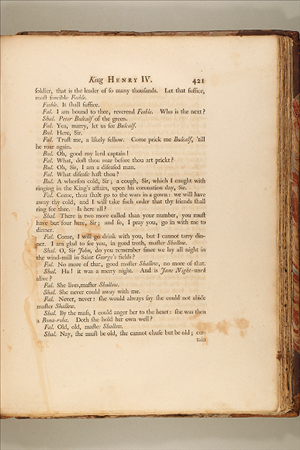 King HENRY IV. 421
soldier, that is the leader of so many thousands. Let that suffice,
most forcible Feeble.
Feeble. It shall suffice.
Fal. I am bound to thee, reverend Feeble. Who is the next?
Shal. Peter Bulcalf of the green.
Fal. Yea, marry, let us see Bulcalf.
Bul. Here, Sir.
Fal. Trust me, a likely fellow. Come prick me Bulcalf, 'till
he roar again.
Bul. Oh, good my lord captain!
Fal. What, dost thou roar before thou art prickt?
Bul. Oh, Sir, I am a diseased man.
Fal. What disease hast thou?
Bul. A whorson cold, Sir; a cough, Sir, which I caught with
ringing in the King's affairs, upon his coronation day, Sir.
Fal. Come, thou shalt go to the wars in a gown: we will have
away thy cold, and I will take such order that thy friends shall
ring for thee. Is here all?
Shal. There is two more called than your number, you must
have but four here, Sir; and so, I pray you, go in with me to
dinner.
Fal. Come, I will go drink with you, but I cannot tarry din-
ner. I am glad to see you, in good troth, master Shallow.
Shal. O, Sir John, do you remember since we lay all night in
the wind-mill in Saint George's fields?
Fal. No more of that, good master Shallow, no more of that.
Shal. Ha! it was a merry night. And is Jane Night-work
alive?
Fal. She lives, master Shallow.
Shal. She never could away with me.
Fal. Never, never: she would always say she could not abide
master Shallow.
Shal. By the mass, I could anger her to the heart: she was then
a Bona-roba. Doth she hold her own well?
Fal. Old, old, master Shallow.
Shal. Nay, she must be old, she cannot chuse but be old; cer-